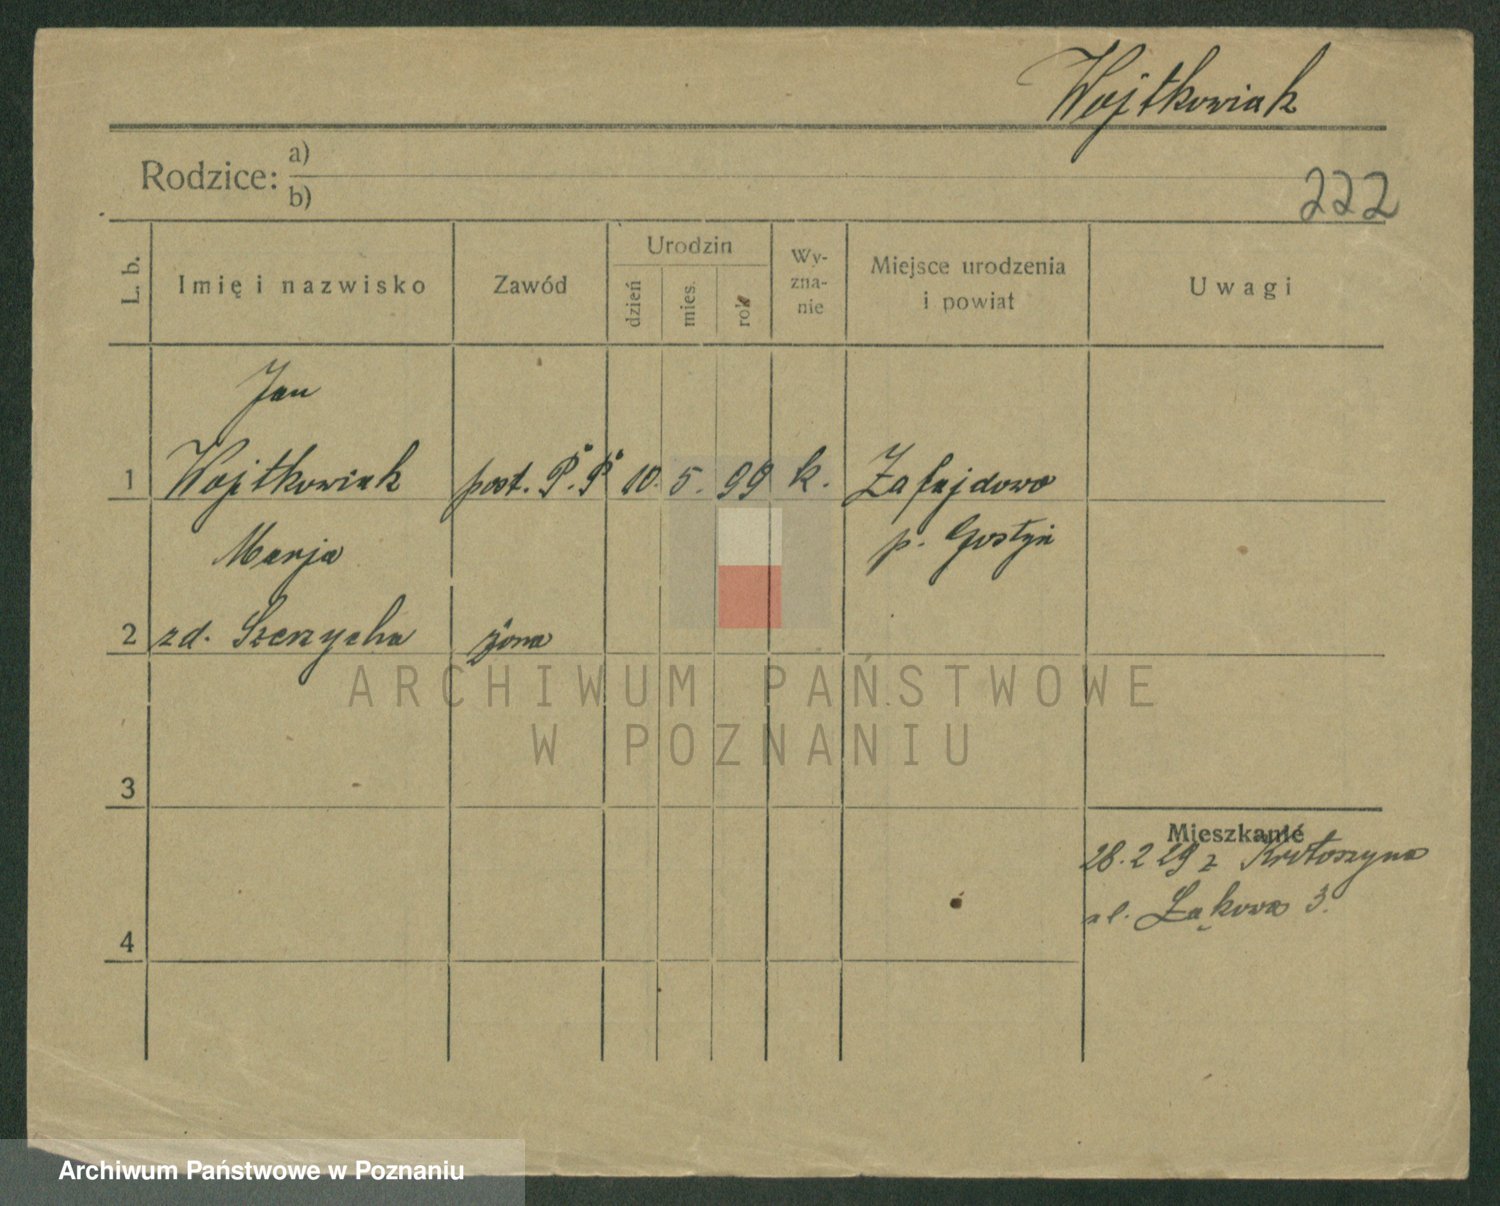 Wojtkowiak
Rodzice:
a)
b)
222
L. b.
Imię i nazwisko
Zawód
Urodzin
dzień
mies.
rok
Wy-
zna-
nie
Miejsce urodzenia
i powiat
Uwagi
Jan
1 Wojtkowiak post. P. P. 10. 5. 99 k. Zalajdowo
Marja p. Gostyń
2 zd. Szczycha żona
3
4
Mieszkanie
28.2 29 z Krotoszyna
ul. Łąkowa 3.
ARCHIWUM PAŃSTWOWE
W POZNANIU
Archiwum Państwowe w Poznaniu